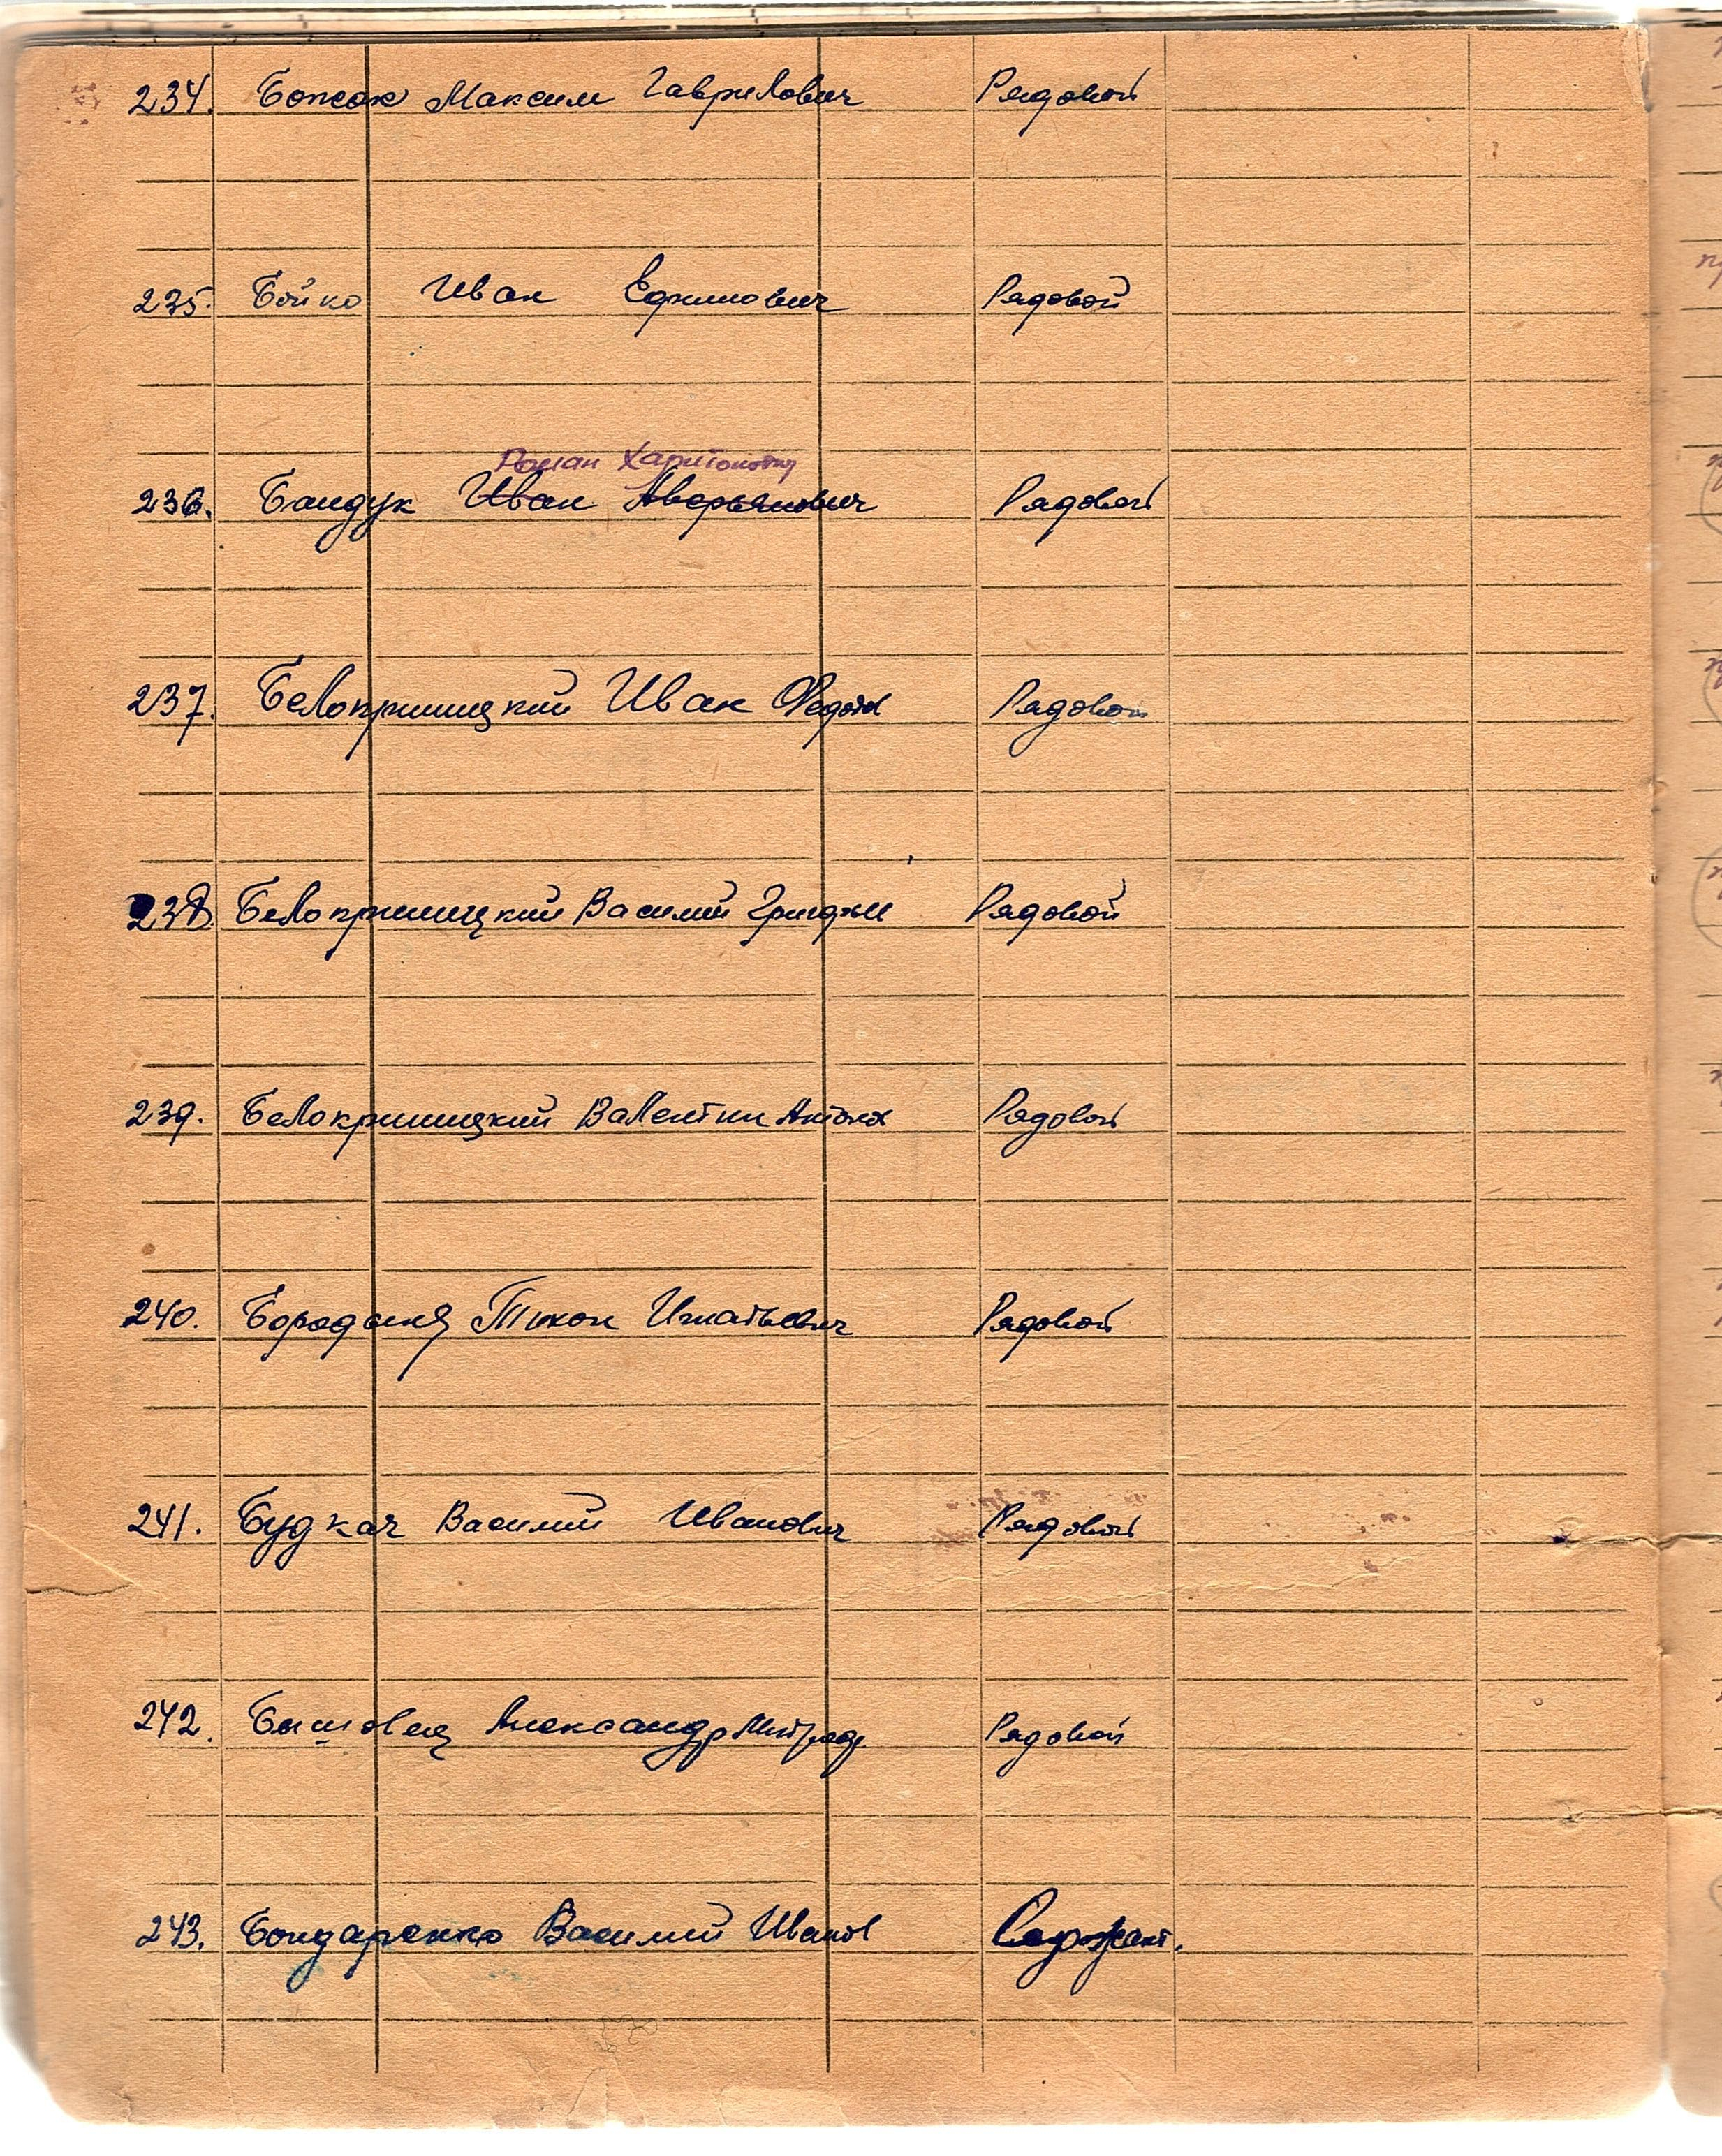 234. Божок Максим Гаврилович Рядовой
235. Бойко Иван Ефимович Рядовой
Роман Харитонович
236. Бондук Иван Аверьянович Рядовой
237. Белокриницкий Иван Федот Рядовой
238. Белокриницкий Василий Григорьи Рядовой
239. Белокриницкий Валентин Антонов Рядовой
240. Бородыня Тихон Игнатьевич Рядовой
241. Будкач Василий Иванович Рядовой
242. Бышовец Александр Рядовой
243. Бондаренко Василий Иванов Сержант.